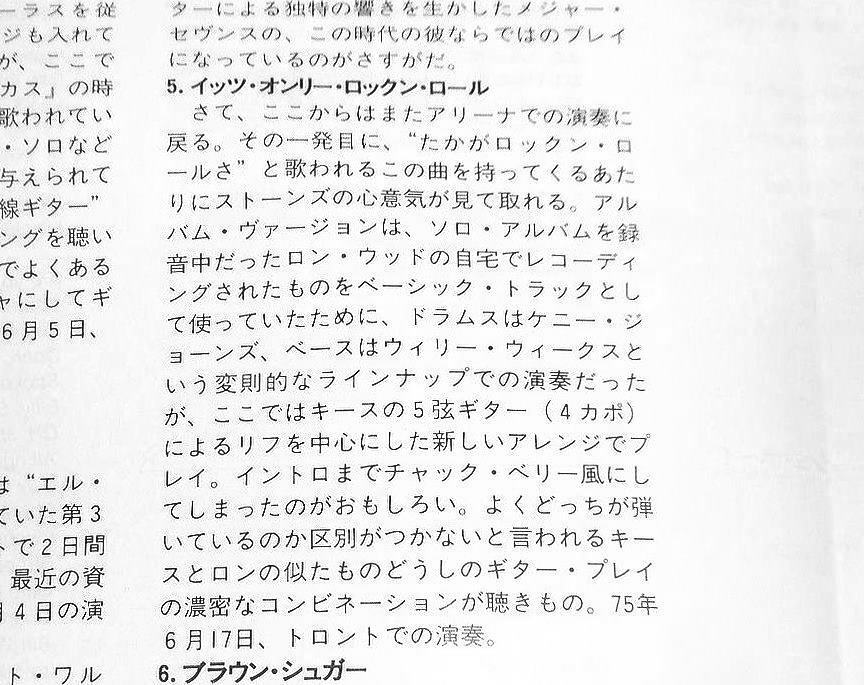 ーラスを従
ジも入れて
が、ここで
カス』の時
歌われてい
・ソロなど
与えられて
線ギター”
ングを聴い
でよくある
ャにしてギ
6月5日、
は“エル・
ていた第3
トで2日間
最近の資
月4日の演
ト・ワル
ターによる独特の響きを生かしたメジャー・
セヴンスの、この時代の彼ならではのプレイ
になっているのがさすがだ。
5. イッツ・オンリー・ロックン・ロール
さて、ここからはまたアリーナでの演奏に
戻る。その一発目に、“たかがロックン・ロ
ールさ”と歌われるこの曲を持ってくるあた
りにストーンズの心意気が見て取れる。アル
バム・ヴァージョンは、ソロ・アルバムを録
音中だったロン・ウッドの自宅でレコーディ
ングされたものをベーシック・トラックとし
て使っていたために、ドラムスはケニー・ジ
ョーンズ、ベースはウィリー・ウィークスと
いう変則的なラインナップでの演奏だった
が、ここではキースの5弦ギター（4カポ）
によるリフを中心にした新しいアレンジでプ
レイ。イントロまでチャック・ベリー風にし
てしまったのがおもしろい。よくどっちが弾
いているのか区別がつかないと言われるキー
スとロンの似たものどうしのギター・プレイ
の濃密なコンビネーションが聴きもの。75年
6月17日、トロントでの演奏。
6. ブラウン・シュガー